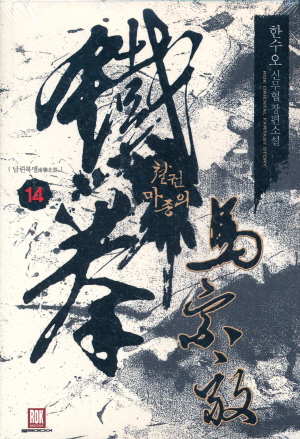 한수오 신무협 장편소설
ROK ORIENTAL FANTASY STORY
鐵拳
철권
마종의
馬宗毅
14
ROK
MEDIA